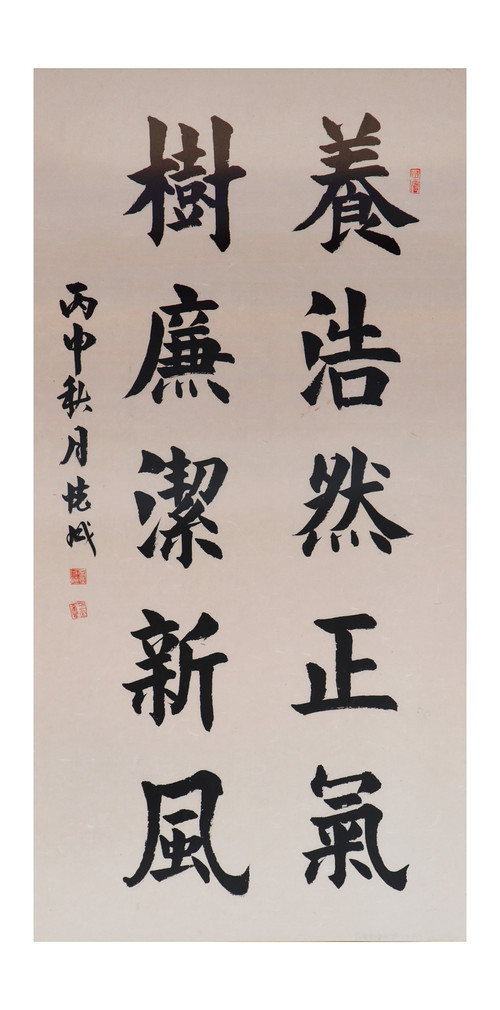 養浩然正氣
樹廉潔新風
丙申秋月